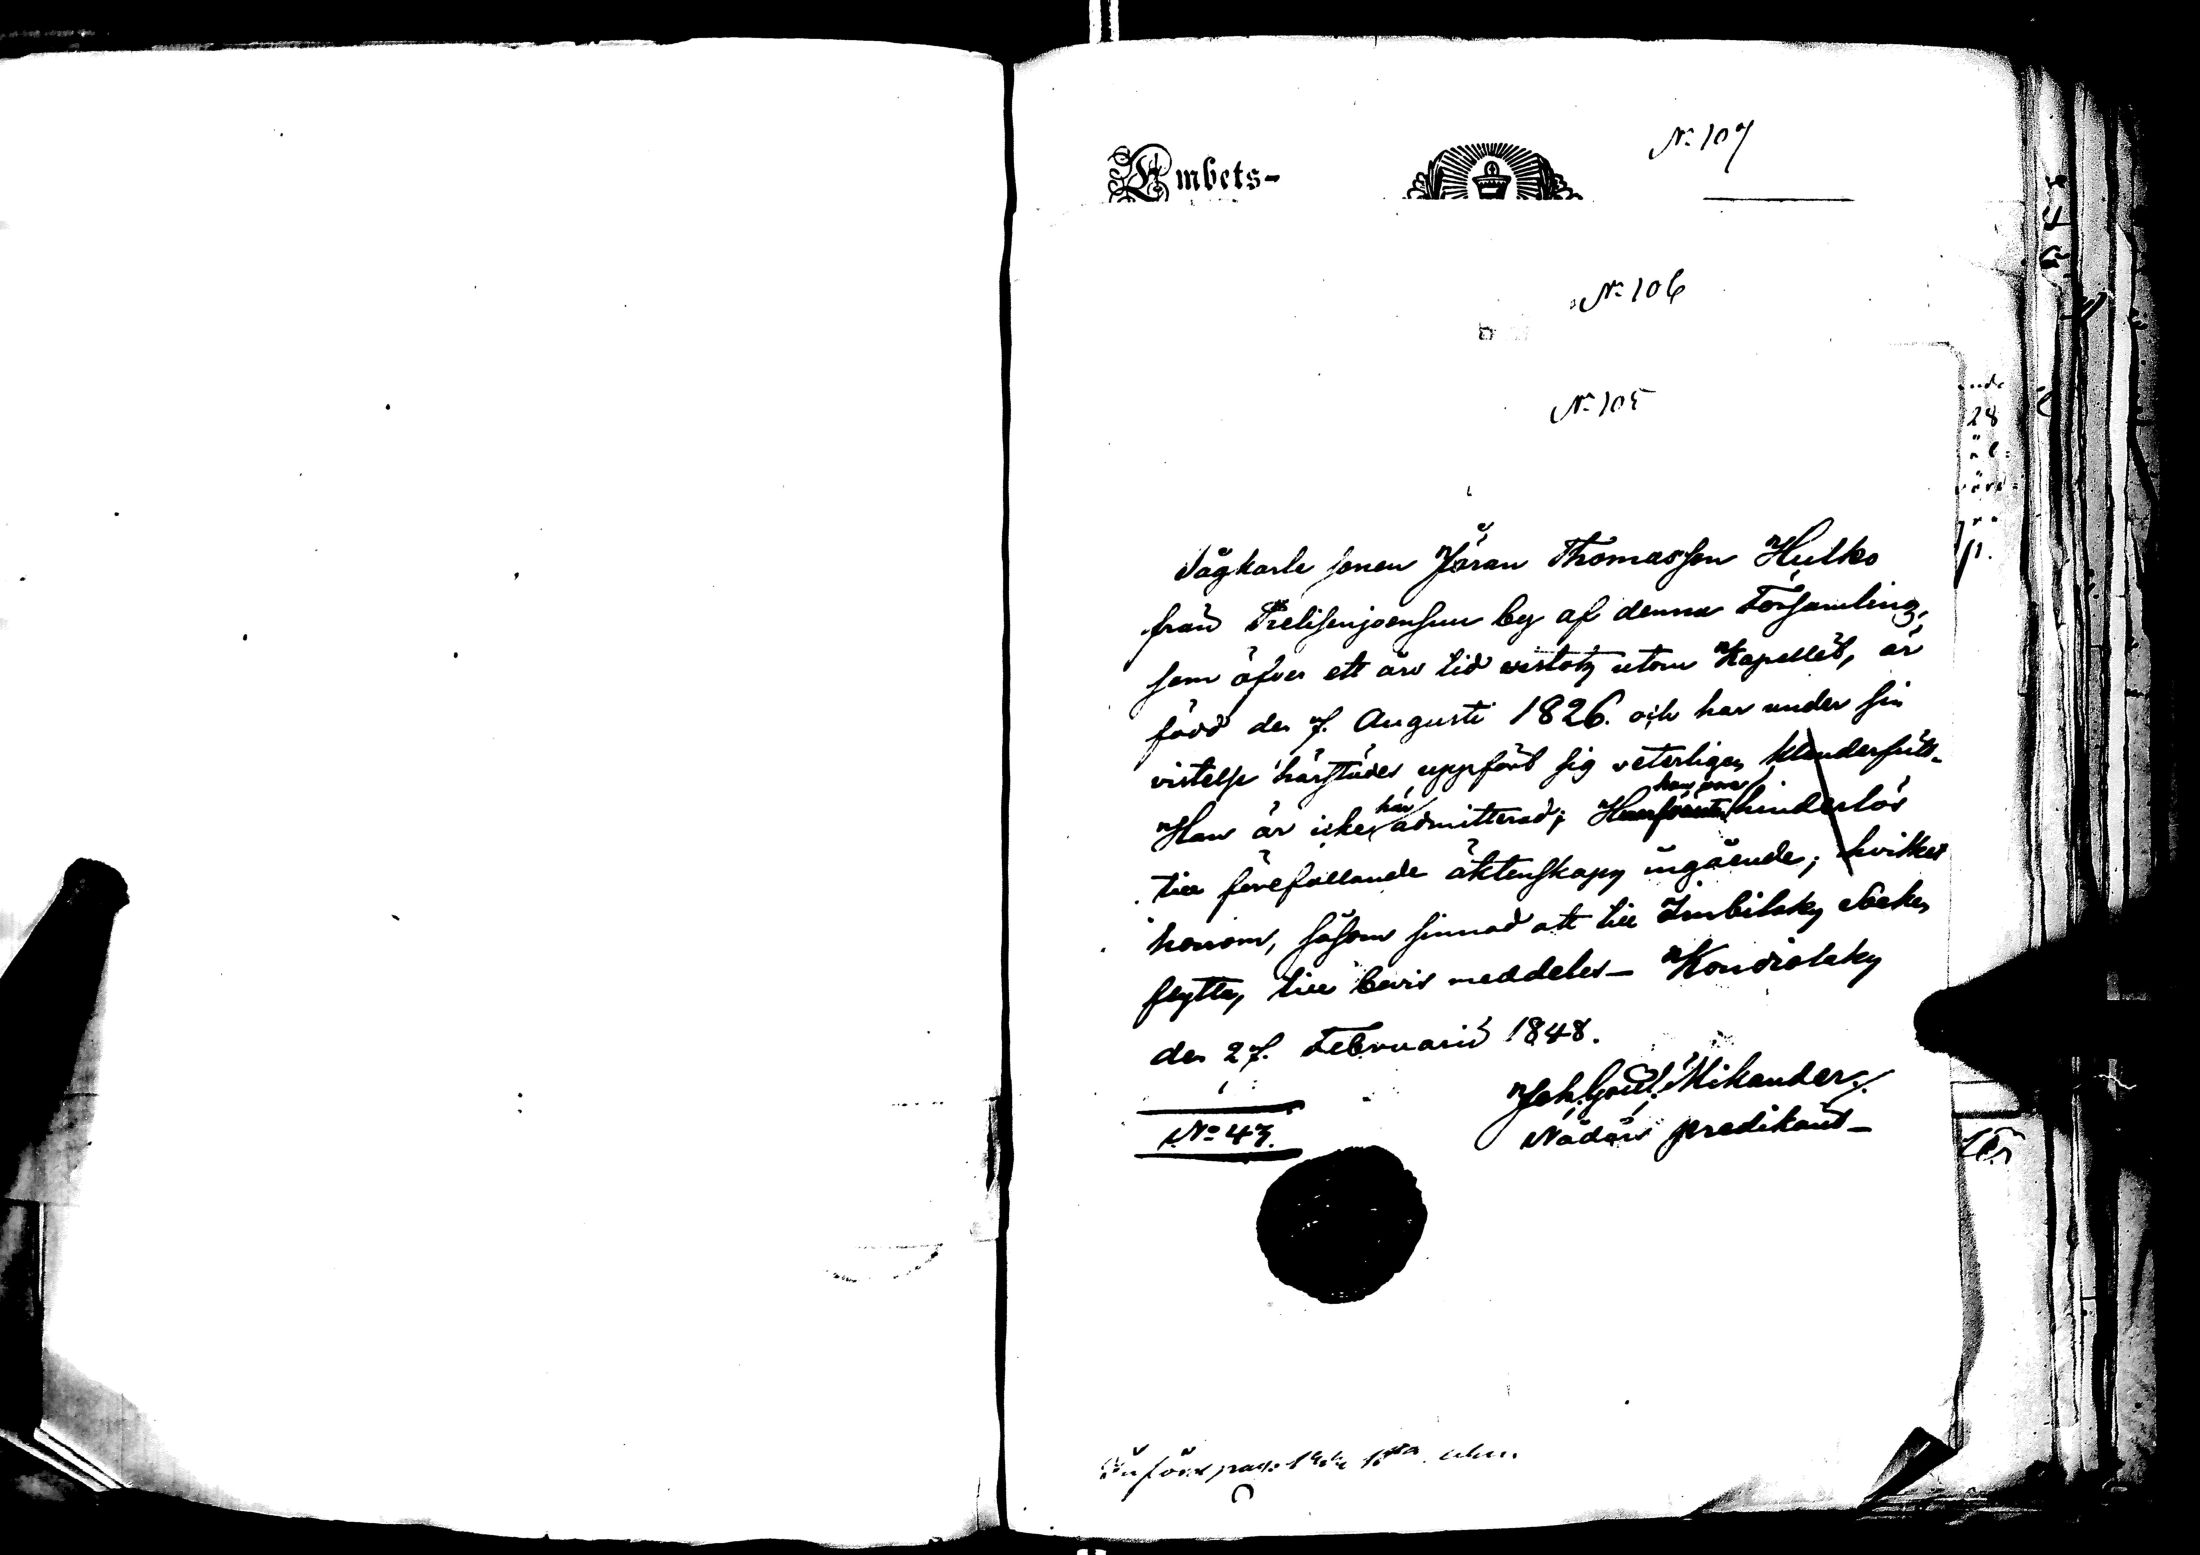 Embets-
No 107
No 106
No 105
Tågkarle sonen Jöran Thomasson Hulko
från by af denna Församling,
som öfver ett års tid vistats utom Kapellet, är
född den 7. Augusti 1826. och har under sin
vistelse härstädes uppfört sig veterligen klanderfritt.
Han är icke här admitterad; han hinderlös
till förefallande äktenskaps ingående; hvilket
honom, såsom sinnad att till Imbilaks
flytta, till bevis meddelas— Kondiolaks
den 27. Februarii 1848.
Joh. Mikander.
Nådårs predikant—
No 43.
Införd pag: